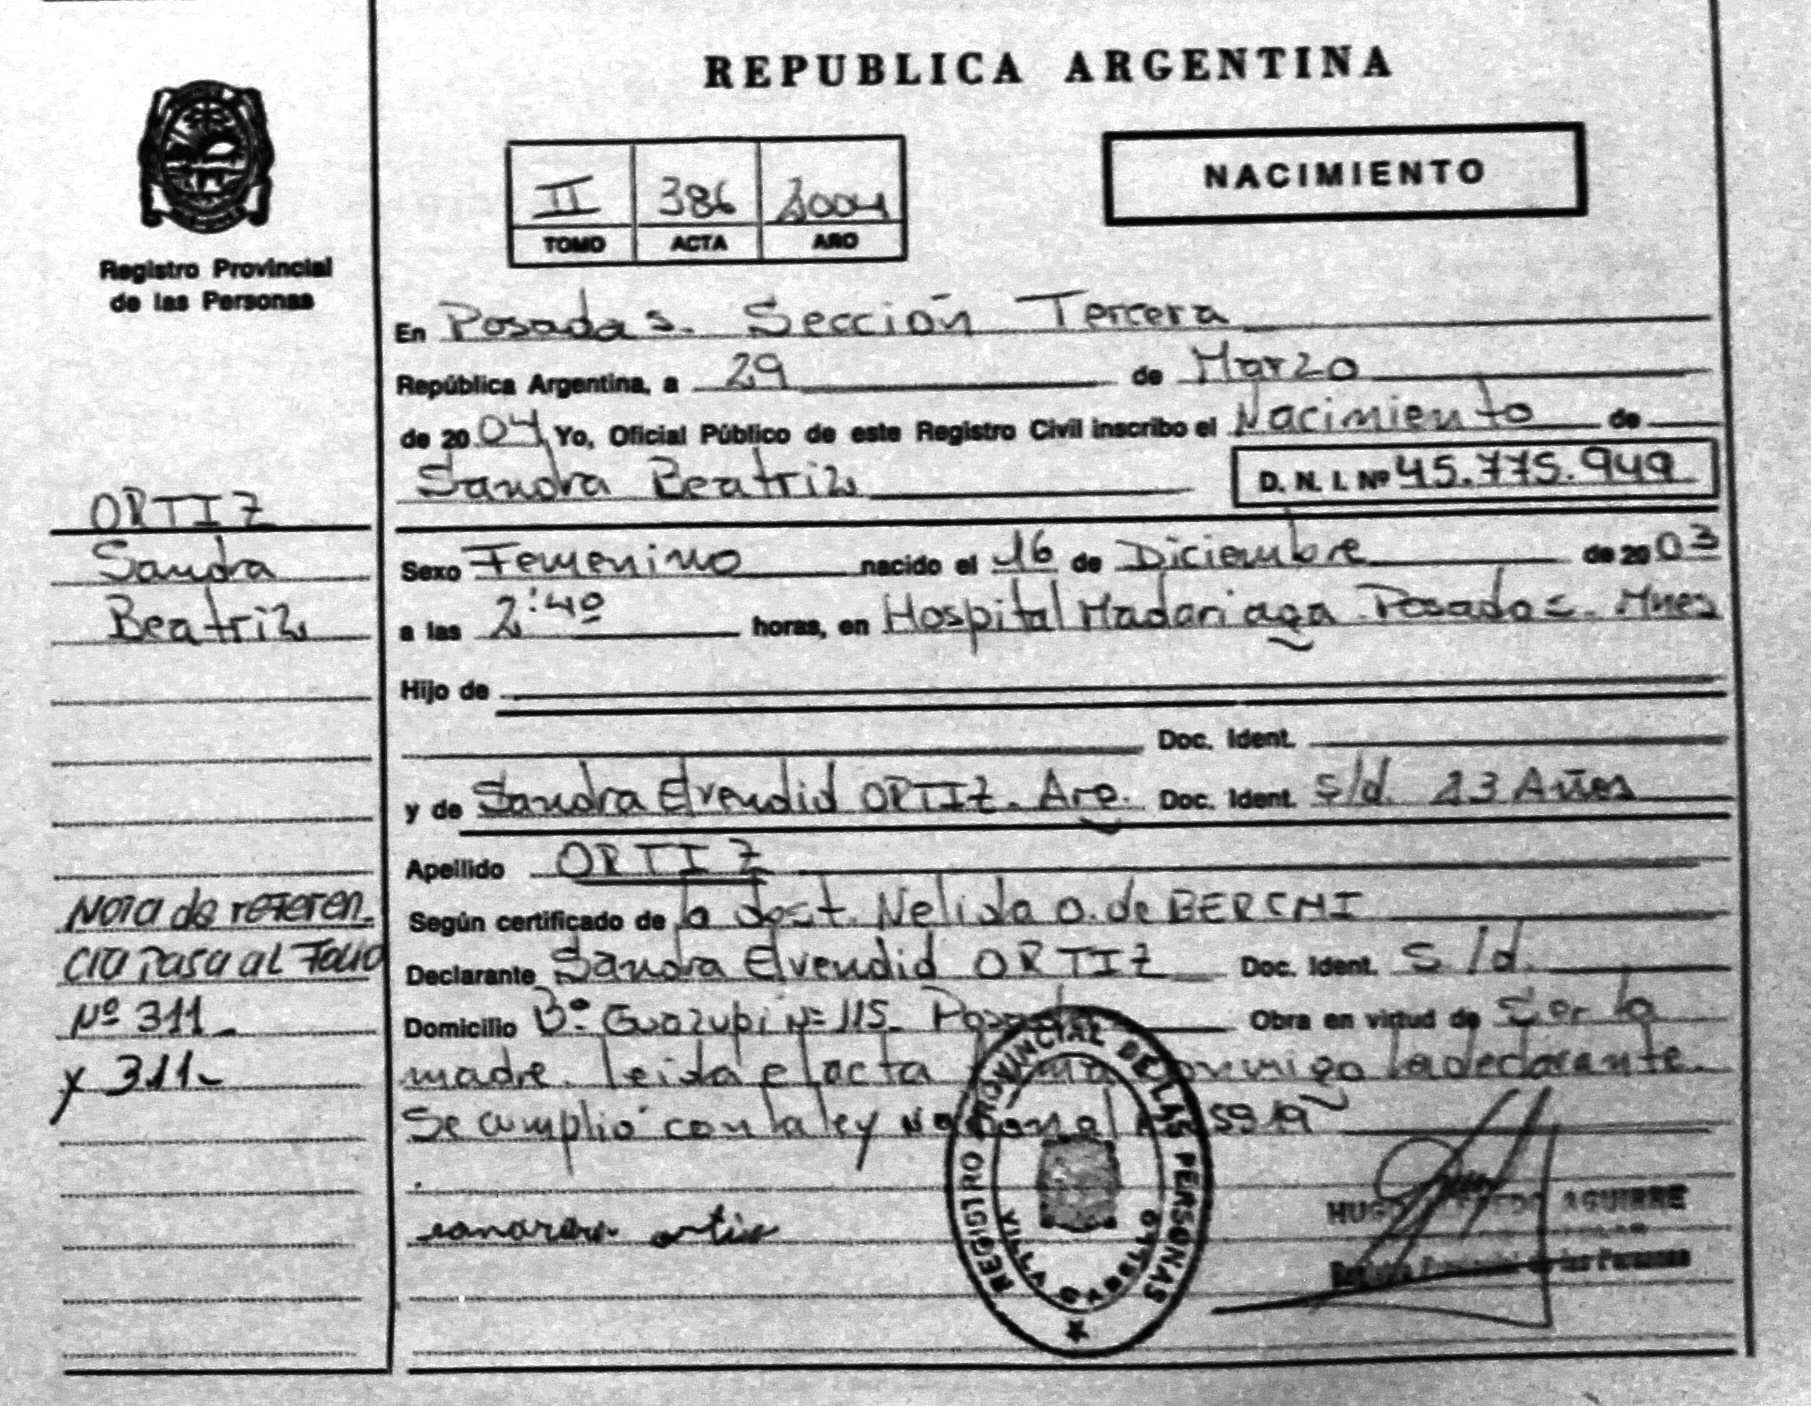 REPUBLICA ARGENTINA
NACIMIENTO
II 386 2004
TOMO ACTA AÑO
Registro Provincial
de las Personas
En Posadas. Sección Tercera
República Argentina, a 29 de Marzo
de 2004 Yo, Oficial Público de este Registro Civil inscribo el Nacimiento de
Sandra Beatriz D. N. I. Nº 45.775.949
ORTIZ
Sandra
Beatriz
Sexo Femenino nacido el 16 de Diciembre de 2003
a las 2:40 horas, en Hospital Madariaga Posadas. Mnes
Hijo de
Doc. Ident.
y de Sandra Elvendid ORTIZ. Arg. Doc. Ident. S/d. 23 Años
Apellido ORTIZ
Según certificado de la Nelida O. de
Declarante Sandra Elvendid ORTIZ Doc. Ident. S/d.
Domicilio Bº Guazupi Nº 115. Posadas Obra en virtud de Ser la
madre. leida el acta conmigo la declarante.
Se cumplió con la ley Nacional 5919
Nota de referen_
cia Pasa al Folio
Nº 311_
y 311_
ortis
REGISTRO PROVINCIAL DE LAS PERSONAS
VILLA CABELLO
HUGO AGUIRRE
de las Personas